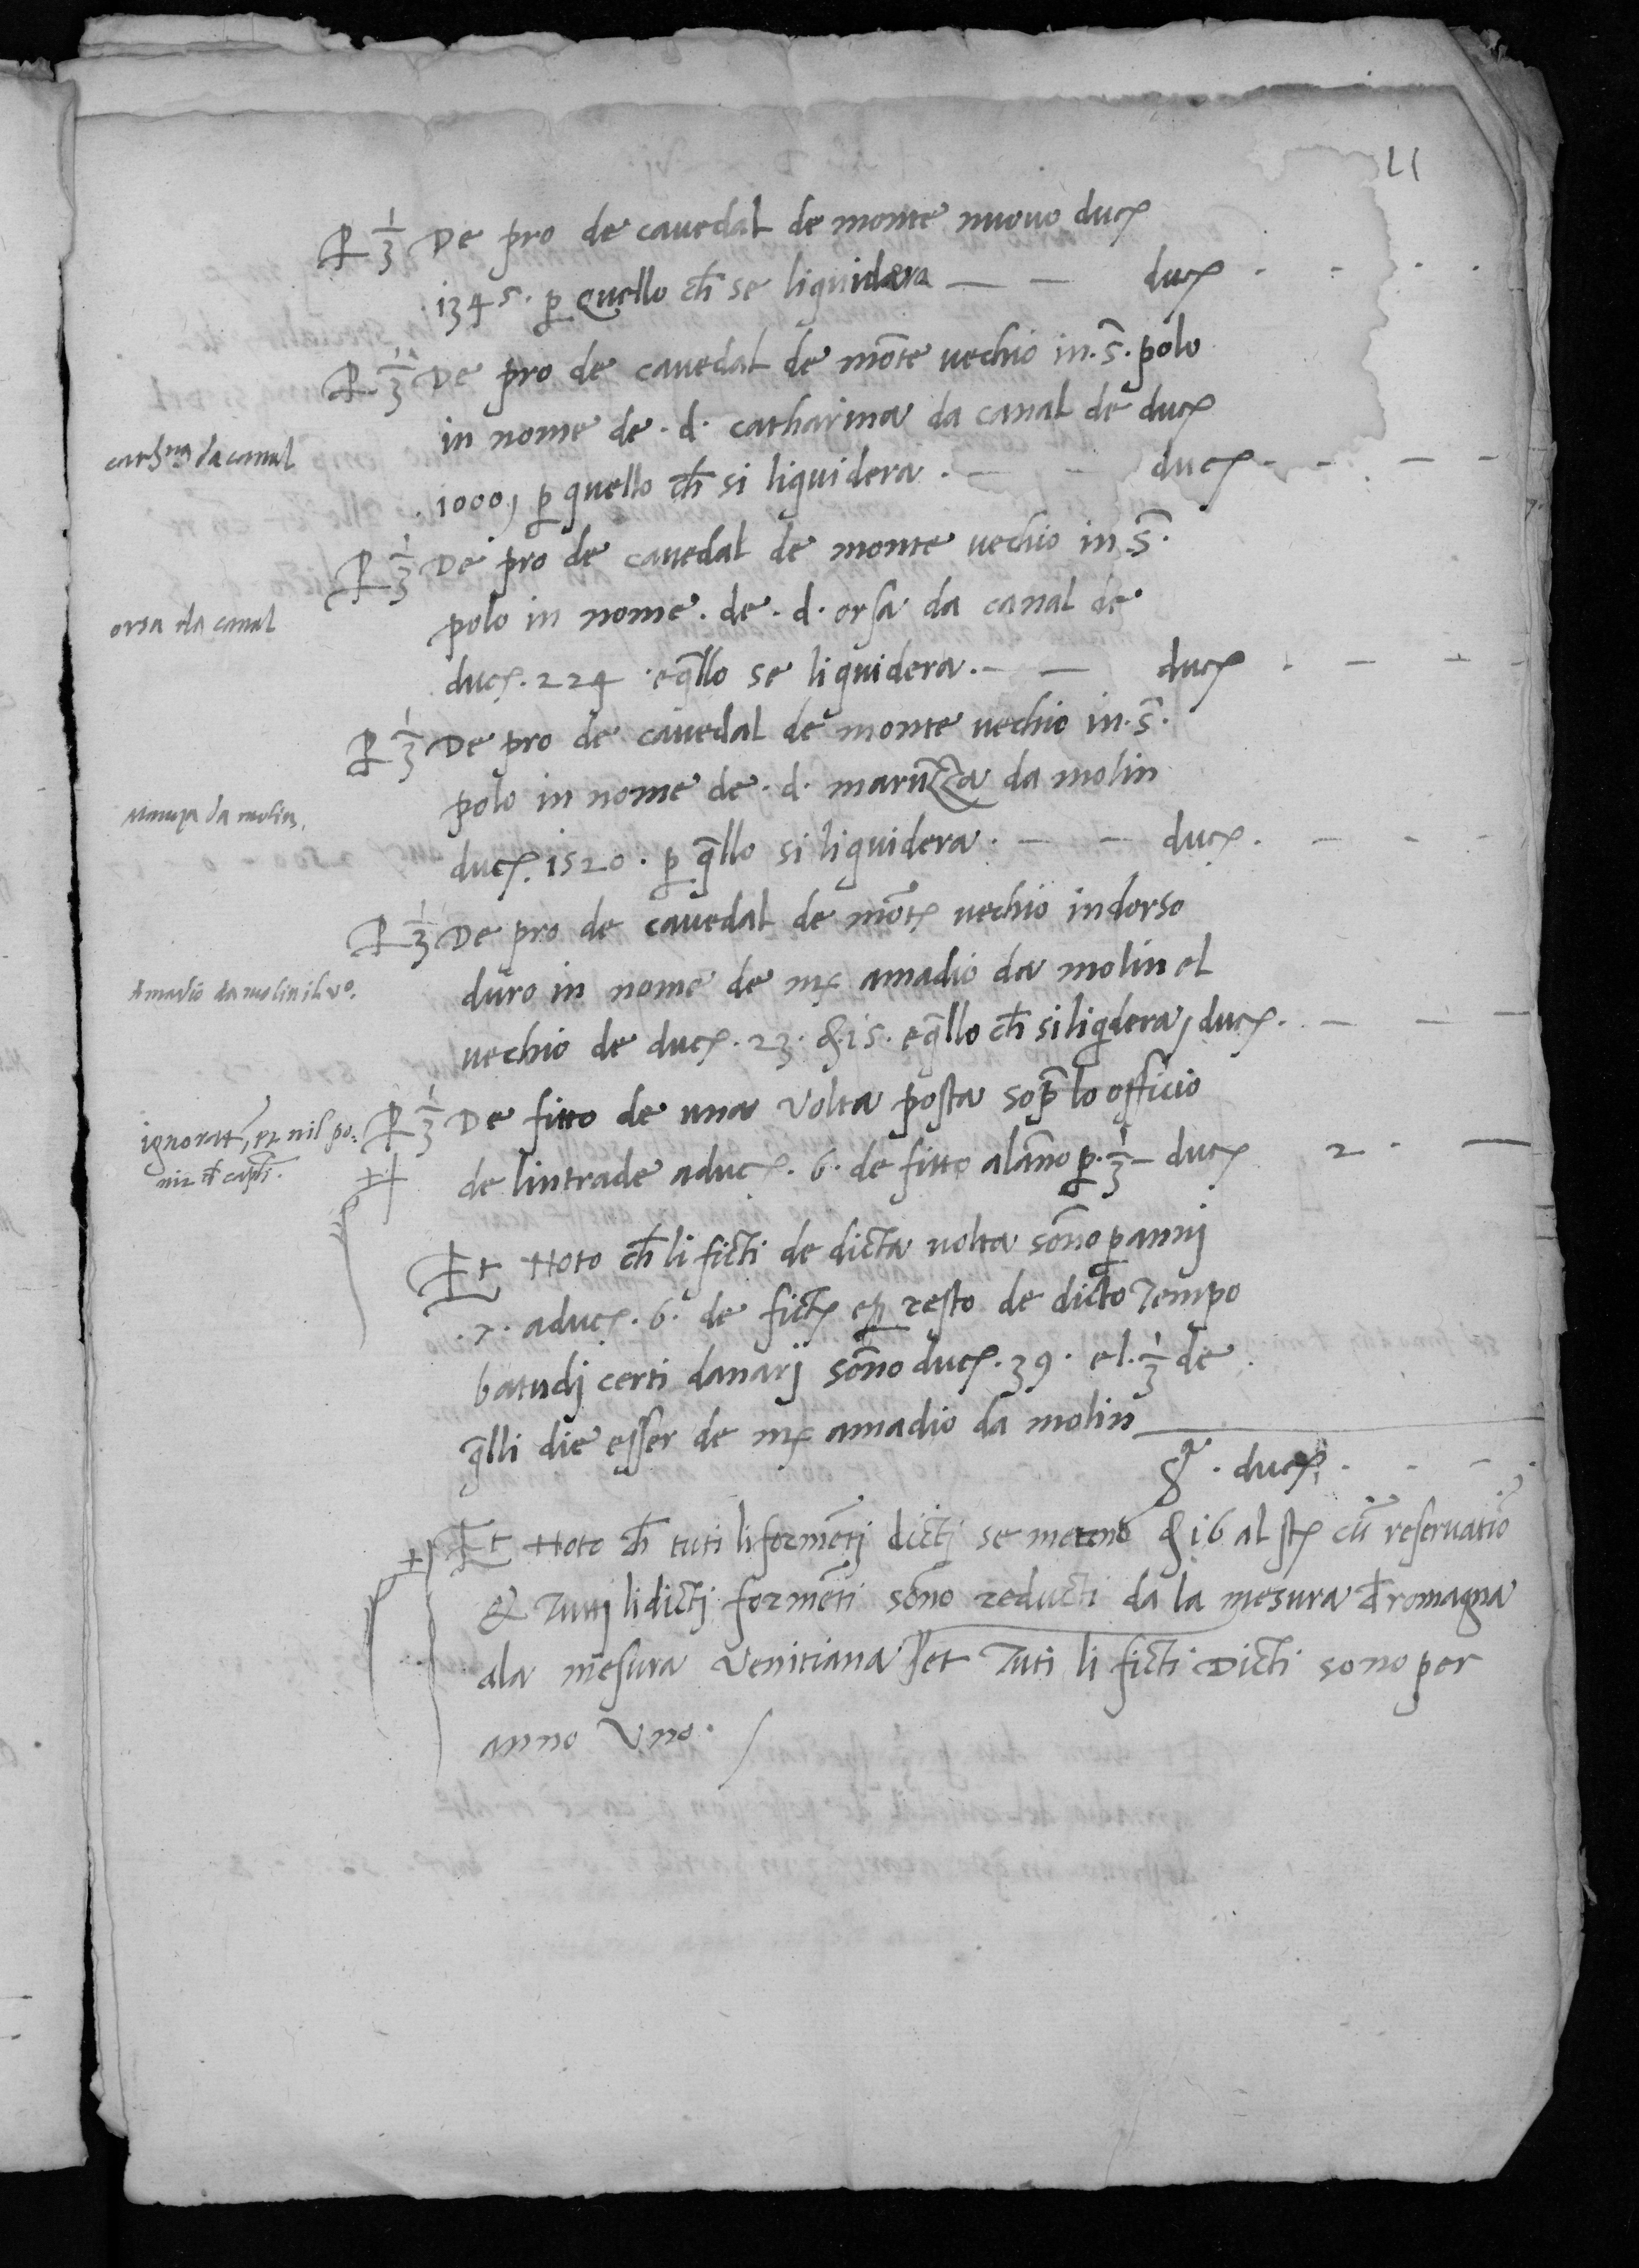 11
P 1/3 De pro de cauedal de monte nuouo duc
1345. p quello ch se liquidera — — duc . - . .
P 1/3 De pro de cauedal de mōte uechio in .S. polo
in nome de .d. catharina da canal de duc
cath.na da canal
.1000, p quello ch si liquidera . — - duc . - . — —
P 1/3 De pro de cauedal de monte uechio in .S.
orsa da canal
polo in nome . de . d. orsa da canal de
duc. 224 . e q̄llo se liquidera . — — duc . — — —
P 1/3 De pro de cauedal de monte uechio in .S.
polo in nome de . d. maruzza da molin
da molin.
duc. 1520 . p q̄llo si liquidera . — — duc . — - -
P 1/3 De pro de cauedal de mōt uechio indorso
Amadio da molin il vo.
duro in nome de mr amadio da molin el
uechio de duc. 23. & 15. e q̄llo ch si liqdera, duc. — — —
P 1/3 De fitto de una volta posta sop lo officio
ignorat, et nil po:
de lintrade a duc. 6. de fitto alāno p. 1/3 — duc 2 . —
Et Noto ch li ficti de dicta uolta sōno p annj
.7. a duc. 6. de fict resto de dicto Tempo
batudj certi danarj sōno duc. 39. el. 1/3 de
q̄lli die esser de mr amadio da molin
duc . . — .
Et Noto ch tuti li formētj dictj se meteno & 16 al st cū reseruatiō
& Tutj li dictj formēti sōno reducti da la mesura d romagna
ala mesura Venitiana et Tuti li ficti Dicti sono per
anno Vno.